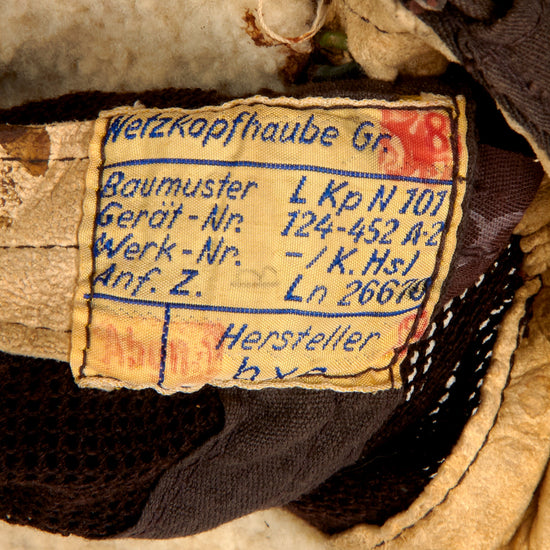 Netzkopfhaube Gr. 58
Baumuster L Kp N 101
Gerät-Nr. 124-452 A-2
Werk-Nr. -/K. Hsl
Anf. Z. Ln 26678
Hersteller